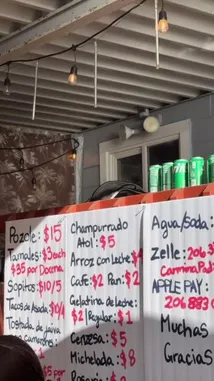 Pozole: $15
Tamales: $3 each
$35 por Docena
Sopitos: $10/5
Tacos de Asada: $10/4
Tostada de Jaiva
Champurrado
Atol: $5
Arroz con Leche:
Café: $2 Pan: $2
Gelatina de Leche:
$2 | Regular: $1
Cerveza: $5
Michelada: $8
Agua/Soda:
Zelle: 206
Carmina
APPLE PAY:
206 883
Muchas
Gracias